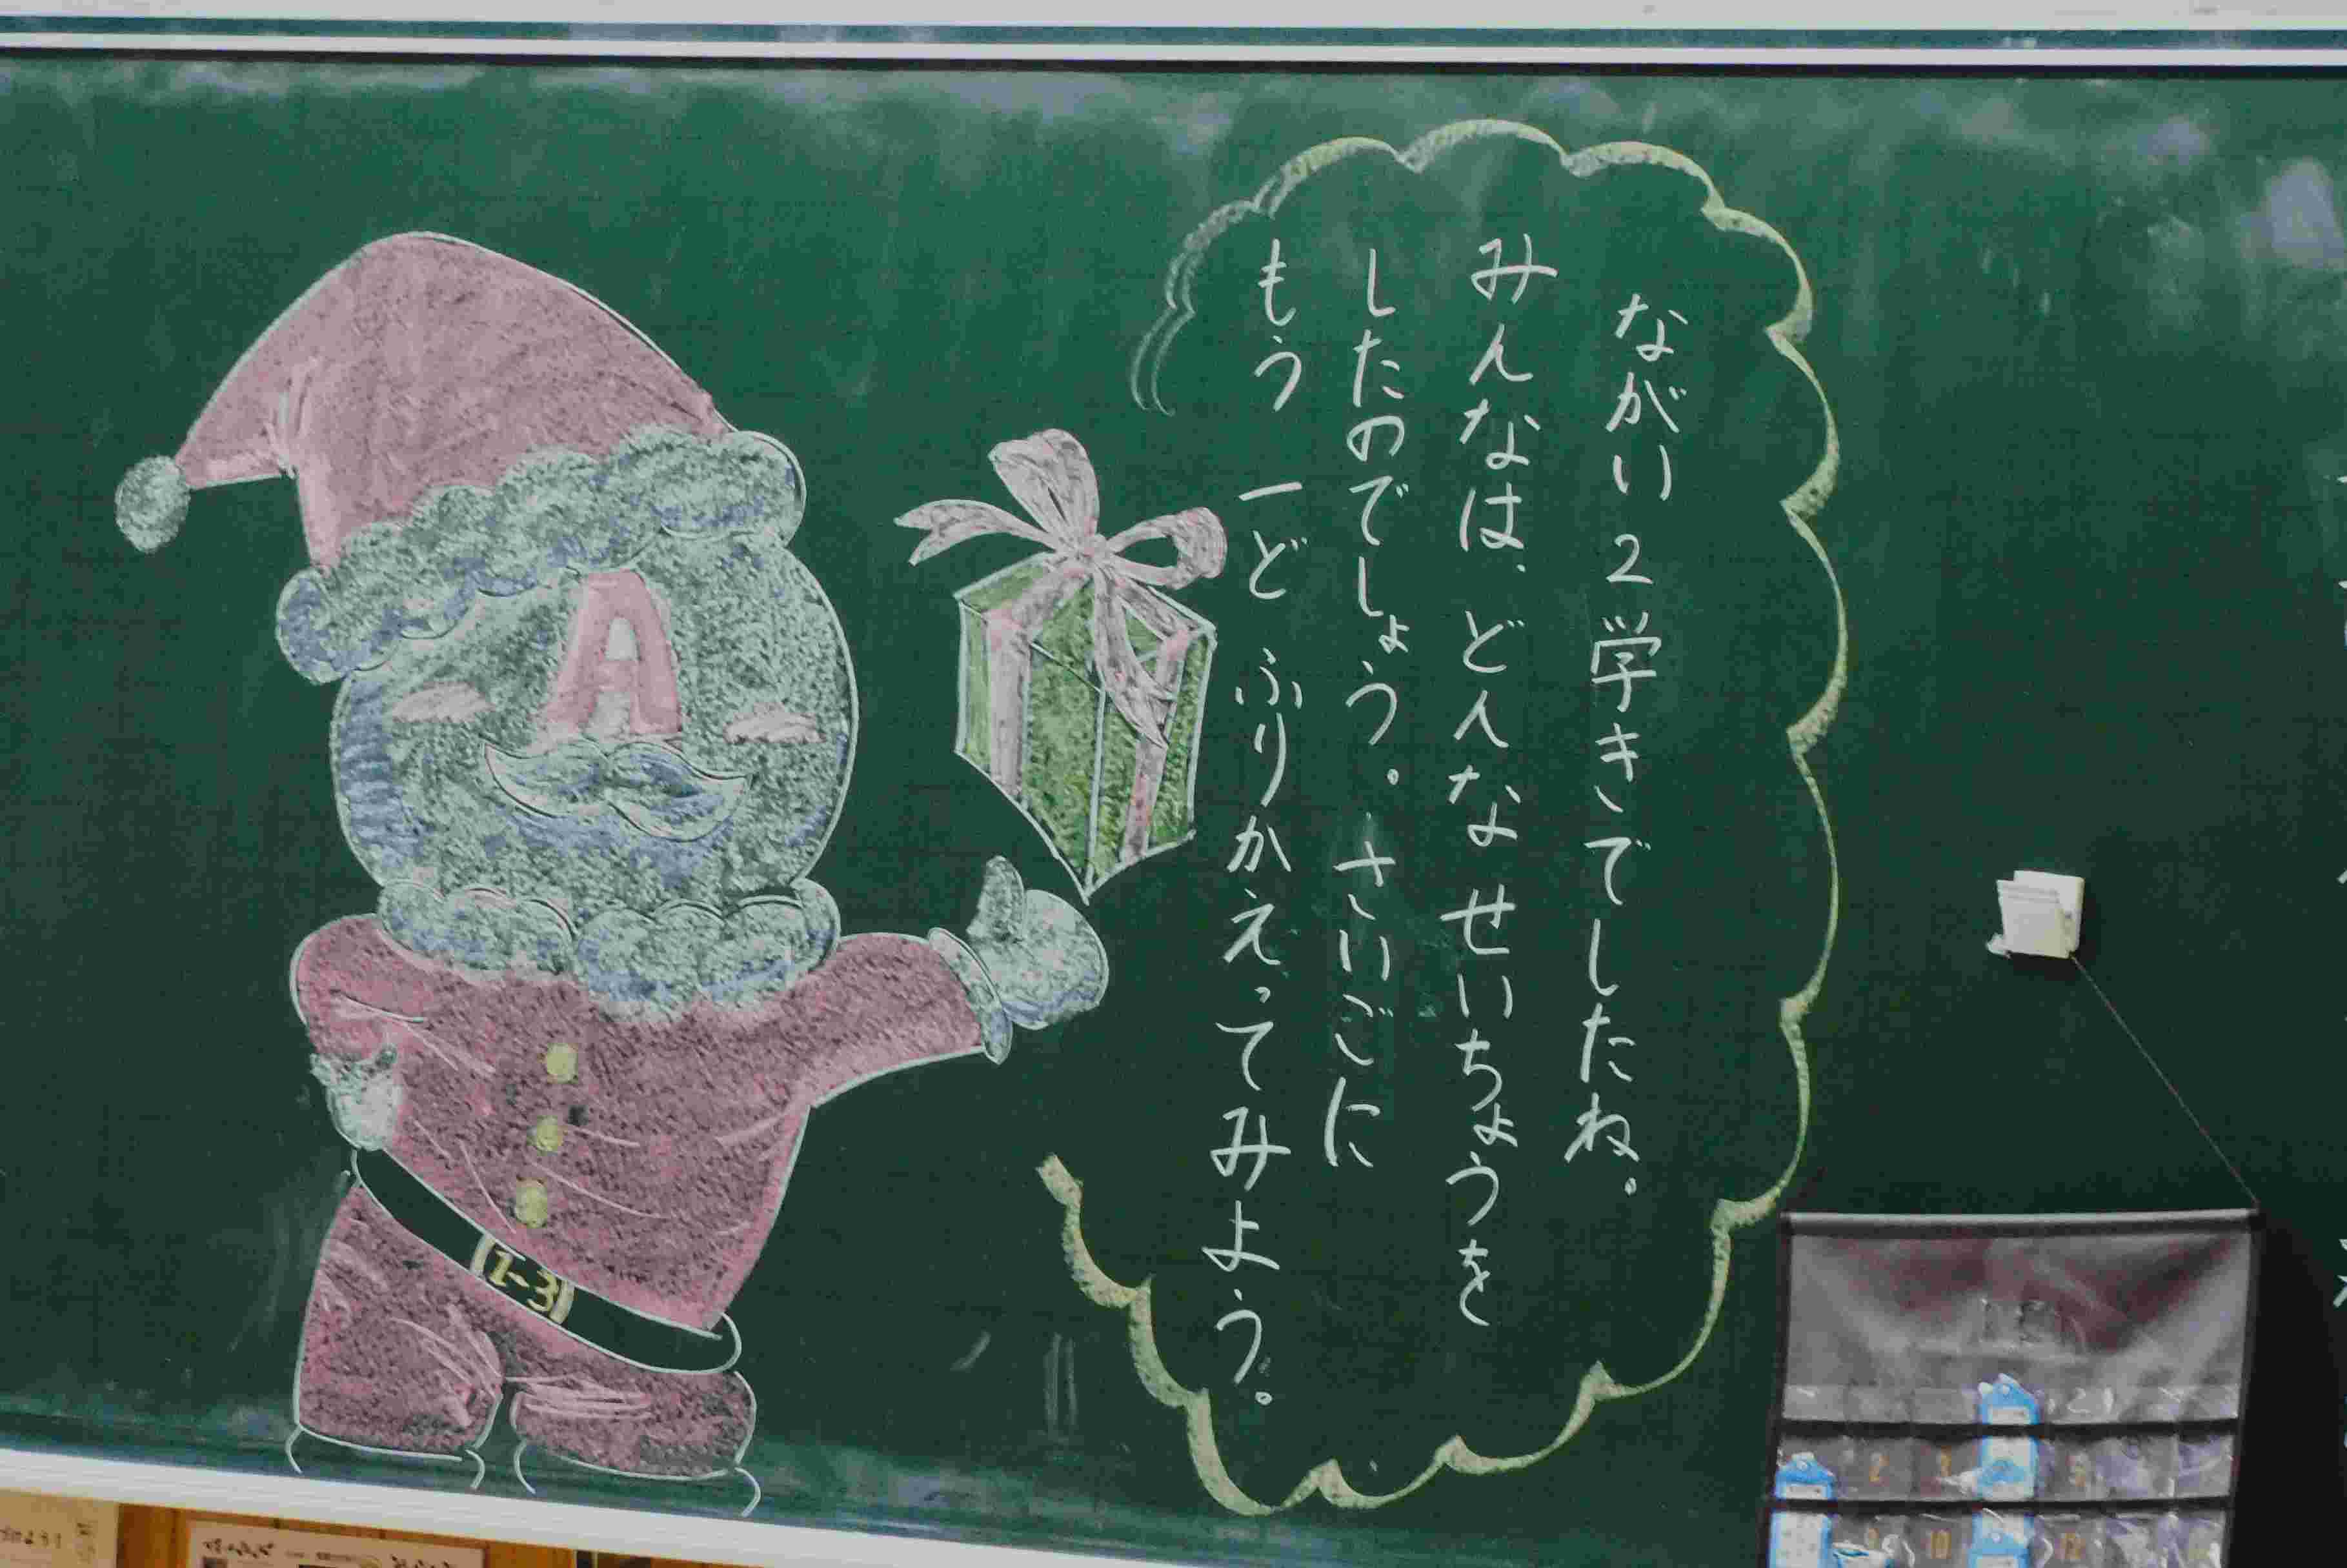 ながい2学きでしたね。
みんなは、どんなせいちょうを
したのでしょう。さいごに
もう一どふりかえってみよう。
A
1-3